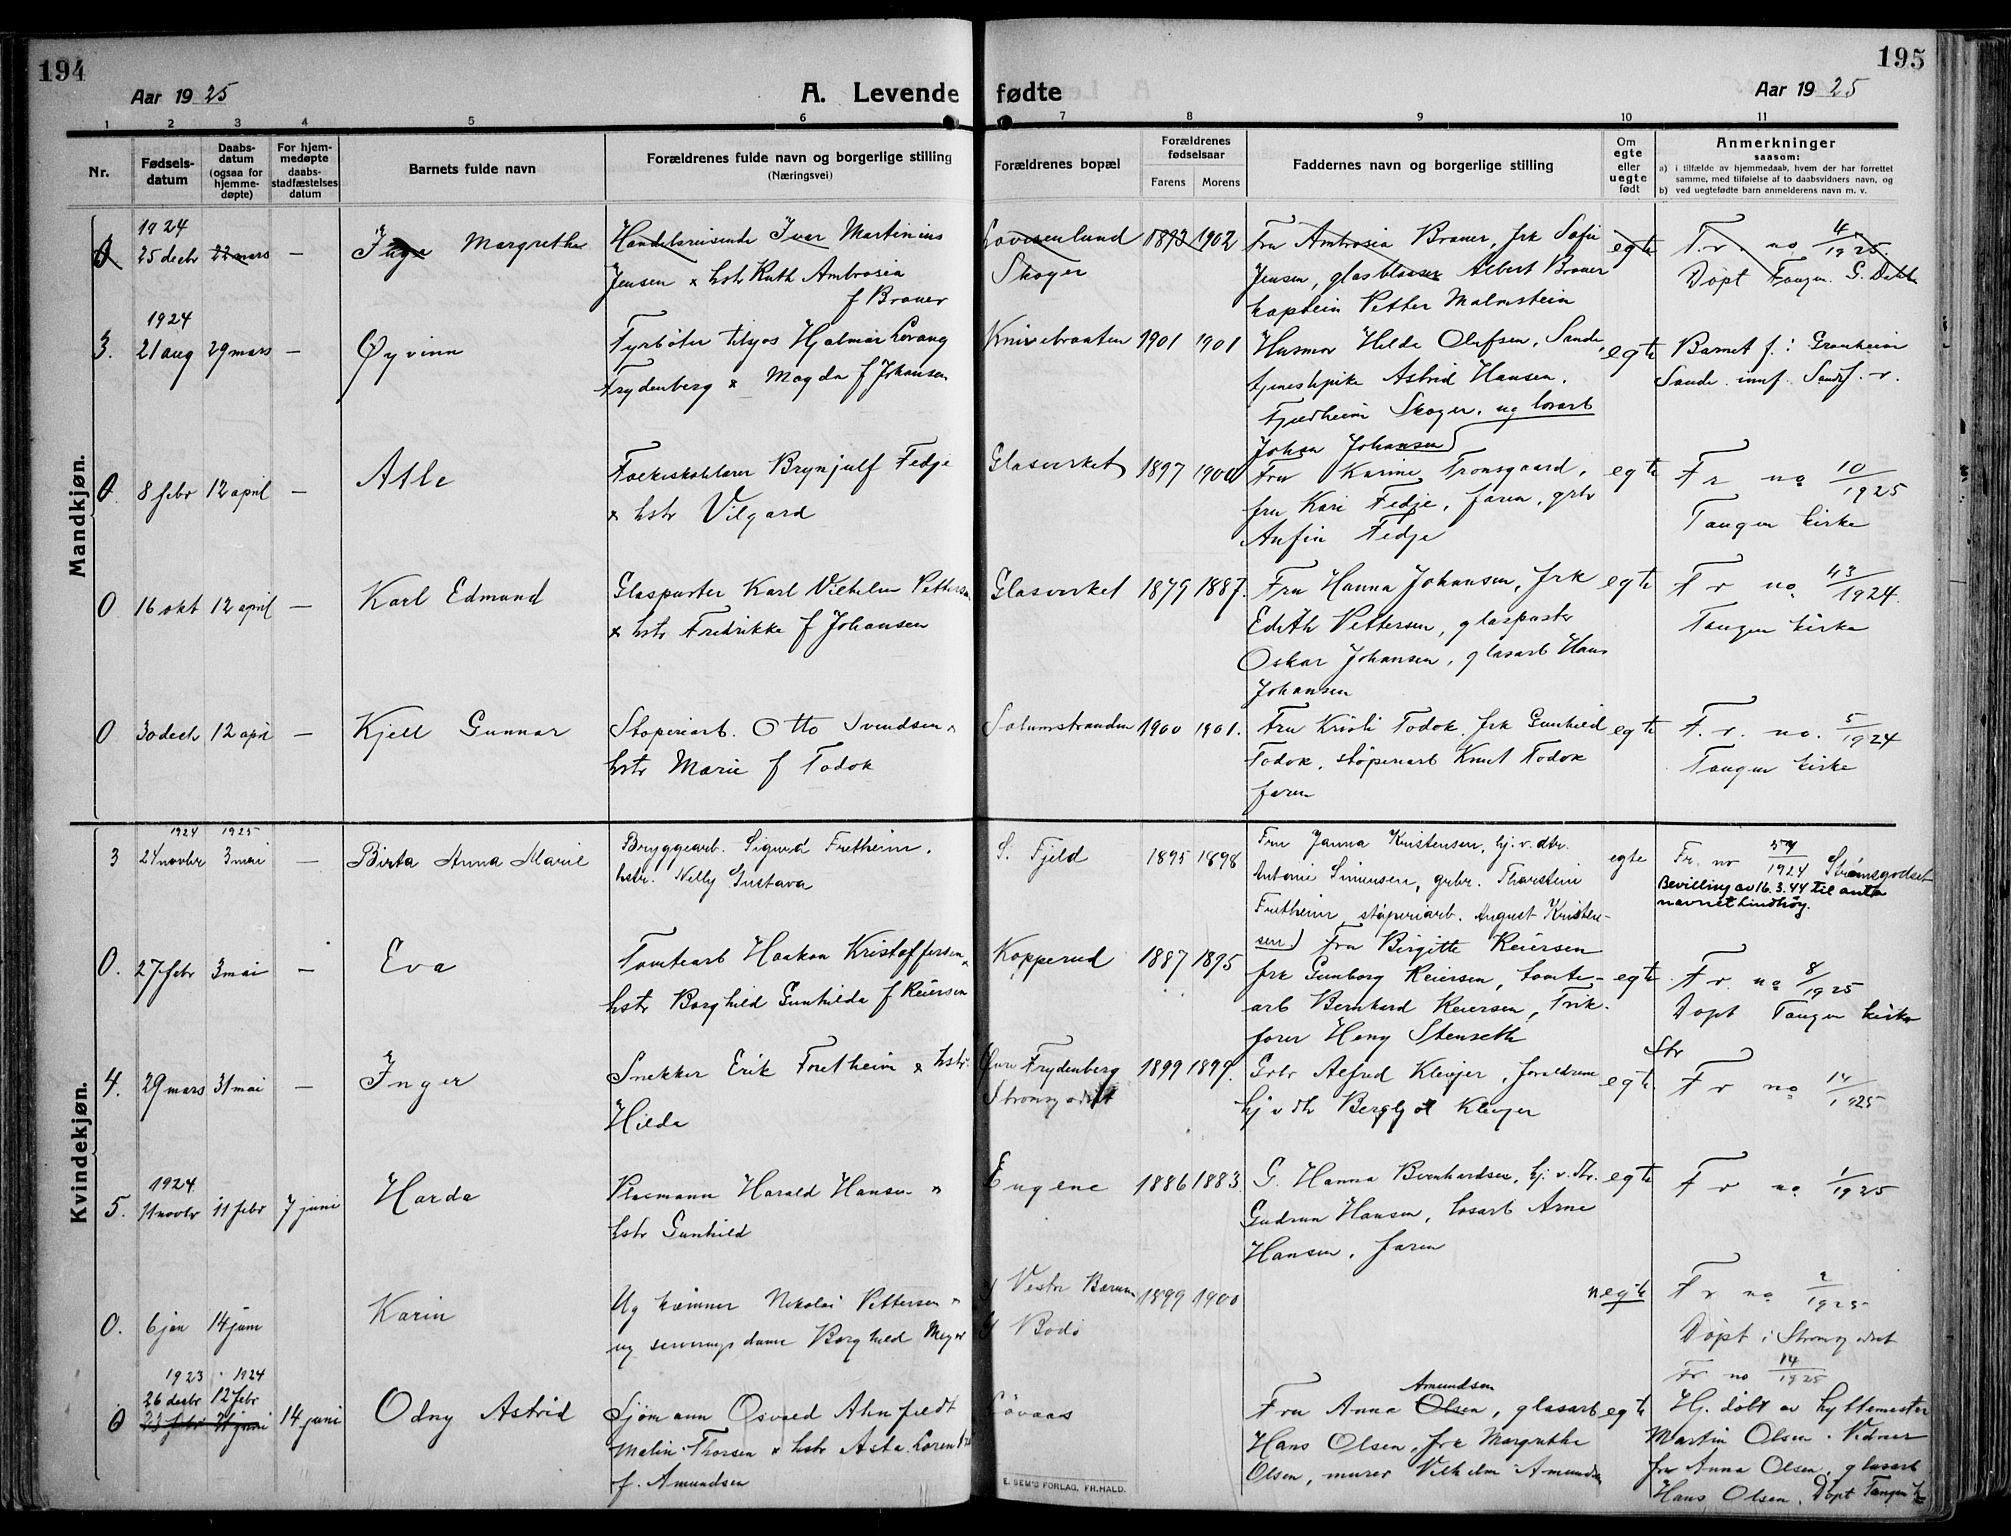 194
195
Aar 1925
A. Levende fødte
Aar 1925
1 2 3 4 5 6 7 8 9 10 11
Nr.
Fødsels-
datum
Daabs-
datum
(ogsaa for
hjemme-
døpte)
For hjem-
medøpte
daabs-
stadfæstelses
datum
Barnets fulde navn
Forældrenes fulde navn og borgerlige stilling
(Næringsvei)
Forældrenes bopæl
Forældrenes
fødselsaar
Farens Morens
Faddernes navn og borgerlige stilling
Om
egte
eller
uegte
født
Anmerkninger
saasom:
a) i tilfælde av hjemmedaab, hvem der har forrettet
samme, med tilføielse af to daabsvidners navn, og
b) ved uegtefødte barn anmelderens navn m. v.
Mandkjøn.
1924
0 25 decbr 22 mars — Inga Margrethe
Handelsreisende Ivar Martinius
Jensen & hstr Ruth Ambrosia
f Brauer
Lovisenlund
Skoger
1893 1902
Fru Ambrosia Brauer, frk Sofie
Jensen, glasblaaser Albert Brauer
kaptein Petter Malmstein
egte
F. r. no 4/1925.
Døpt Tangen. G. Dahl
1924
3. 21 aug 29 mars — Øyvinn
Fyrbøter tilsjøs Hjalmar Lovang
Frydenberg & Magda f Johansen
Knivebraaten 1901 1901
Husmor Hilda Olefsen, Sande,
tjenestepike Astrid Hansen,
Fjeldheim Skoger, ug løsarb
Johan Johansen
egte
Barnet f.: Granheim
Sande. innf. Sande f. r.
0. 8 febr 12 april — Atle
Folkeskolelærer Brynjulf Fedje
& hstr Vilgard
Glasverket 1897 1900
Fru Karine Tronsgaard,
fru Kari Fedje, faren, grbr
Anfin Fedje
egte
F r no 10/1925
Tangen kirke
0 16 okt 12 april — Karl Edmund
Glaspuster Karl Vilhelm Pettersen
& hstr Fredrikke f Johansen
Glasverket 1879 1887.
Fru Hanna Johansen, frk
Edith Pettersen, glaspuster
Oskar Johansen, glasarb Hans
Johansen
egte
F r no 43/1924.
Tangen kirke
0 30 decb 12 april — Kjell Gunnar
Støperiarb. Otto Svendsen &
hstr Marie f Todok
Solumstranden 1900 1901.
Fru Kristi Todok, frk Gunhild
Todok, støperiarb Knut Todok
faren
egte
F. r. no. 5/1924
Tangen kirke
Kvindekjøn.
1924 1925
3 24 novbr 3 mai — Birta Anna Marie
Bryggearb. Sigurd Fretheim,
hstr. Nelly Gustava
S. Fjeld 1895 1898
Fru Janna Kristensen, hj. v. dtr.
Antonie Simensen, grbr. Tharstein
Fretheim, støperiarb. August Kristen-
sen
egte
Fr. no 54/1924 Strømsgodset
Bevilling av 16.3.44 til anta
navnet Lindhøy.
0. 27 febr 3 mai — Eva
Tomtearb Haakon Kristoffersen &
hstr Borghild Gunhilda f Reiersen
Kopperud 1887 1895
Fru Birgitte Reiersen
frk Gunborg Reiersen, tomte-
arb Bernhard Reiersen,
Heny Stenseth
egte
F r. no 8/1925
Døpt Tangen kirke
4. 29 mars 31 mai — Inger
Snekker Erik Fretheim & hstr
Hilda
Frydenberg
Strømsgodset
1899 1899.
Grbr Alfred Klevjer, foreldrene
hj v dtr Bergljot Klevjer
egte
Str
F r no 14/1925
1924
5. 11 novbr 11 febr 7 juni Harda
Plasmann Harald Hansen &
hstr Gunhild
Eugene 1886 1883
G. Hanna Bernhardsen, hj. v. dtr.
Gudrun Hansen, løsarb Arne
Hansen, faren
egte
F r no 1/1925
0. 6 jan 14 juni Karin
Ug kemner Nikolai Pettersen &
ug serveringsdame Borghild Meyer
Vestre Bærum
Bodø
1899 1900
uegte
F r no 2/1925
Døpt i Strømsgodset
Fr no 14/1925
1923 1924
26 decbr 12 febr
0 23 febr 14 juni 14 juni Odny Astrid
Sjømann Osvald Ahnfeldt
Malin-Thorsen & hstr Asta Lorentze
f. Amundsen
Løvaas
Amundsen
Fru Anna Olsen, glasarb
Hans Olsen, frk Margrethe
Olsen, murer Vilhelm Amundsen
egte
Hj. døbt av hyttemester
Martin Olsen. Vidner
fru Anna Olsen, glasarb
Hans Olsen. Døpt Tangen k
E. SEM'S FORLAG, FR.HALD.